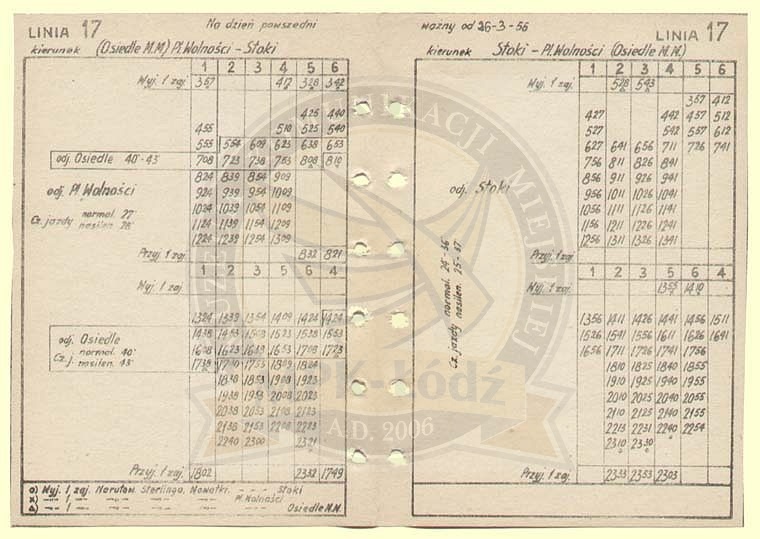 LINIA 17
Na dzień powszedni
kierunek (Osiedle M.M) Pl. Wolności - Stoki
1 2 3 4 5 6
Wyj. 1 zaj. 357 412 328 342
425 440
455 510 525 540
555 554 609 623 638 653
odj. Osiedle 40'-43' 708 723 738 753 808 819
odj. Pl. Wolności
824 839 854 909
924 939 954 1009
Cz. jazdy normal. 27'
nasilen. 28'
1024 1039 1054 1109
1124 1139 1154 1209
1224 1239 1254 1309
Przyj. 1 zaj. 832 821
1 2 3 4 5 6 4
Wyj. 1 zaj.
1324 1339 1354 1409 1424 1424
odj. Osiedle
Cz. j. normal. 40'
nasilen. 43'
1438 1453 1508 1523 1538 1553
1608 1623 1638 1653 1708 1723
1738 1753 1809 1824
1838 1853 1908 1923
1938 1953 2008 2023
2038 2053 2108 2123
2138 2153 2208 2223
2240 2300 2321
Przyj. 1 zaj. 1802 2332 1749
o) Wyj. 1 zaj. Narutow. Sterlinga, Nowotki, - - - Stoki
Pl. Wolności
Osiedle M.M.
ważny od 26-3-56
LINIA 17
kierunek Stoki - Pl. Wolności (Osiedle M.M.)
1 2 3 4 5 6
Wyj. 1 zaj. 528 543
357 412
427 442 457 512
527 542 557 612
627 641 656 711 726 741
756 811 826 841
odj. Stoki
856 911 926 941
956 1011 1026 1041
1056 1111 1126 1141
1156 1211 1226 1241
1256 1311 1326 1341
Przyj. 1 zaj.
Cz. jazdy normal. 24'-36'
nasilen. 25'-37'
1 2 3 4 5 6 4
Wyj. 1 zaj. 1355 1410
1356 1411 1426 1441 1456 1511
1526 1541 1556 1611 1626 1641
1656 1711 1726 1741 1756
1810 1825 1840 1855
1910 1925 1940 1955
2010 2025 2040 2055
2110 2125 2140 2155
2213 2231 2240 2254
2310 2330
Przyj. 1 zaj. 2333 2353 2303
MIEJSKIEJ
PK-Łódź
A.D. 2006